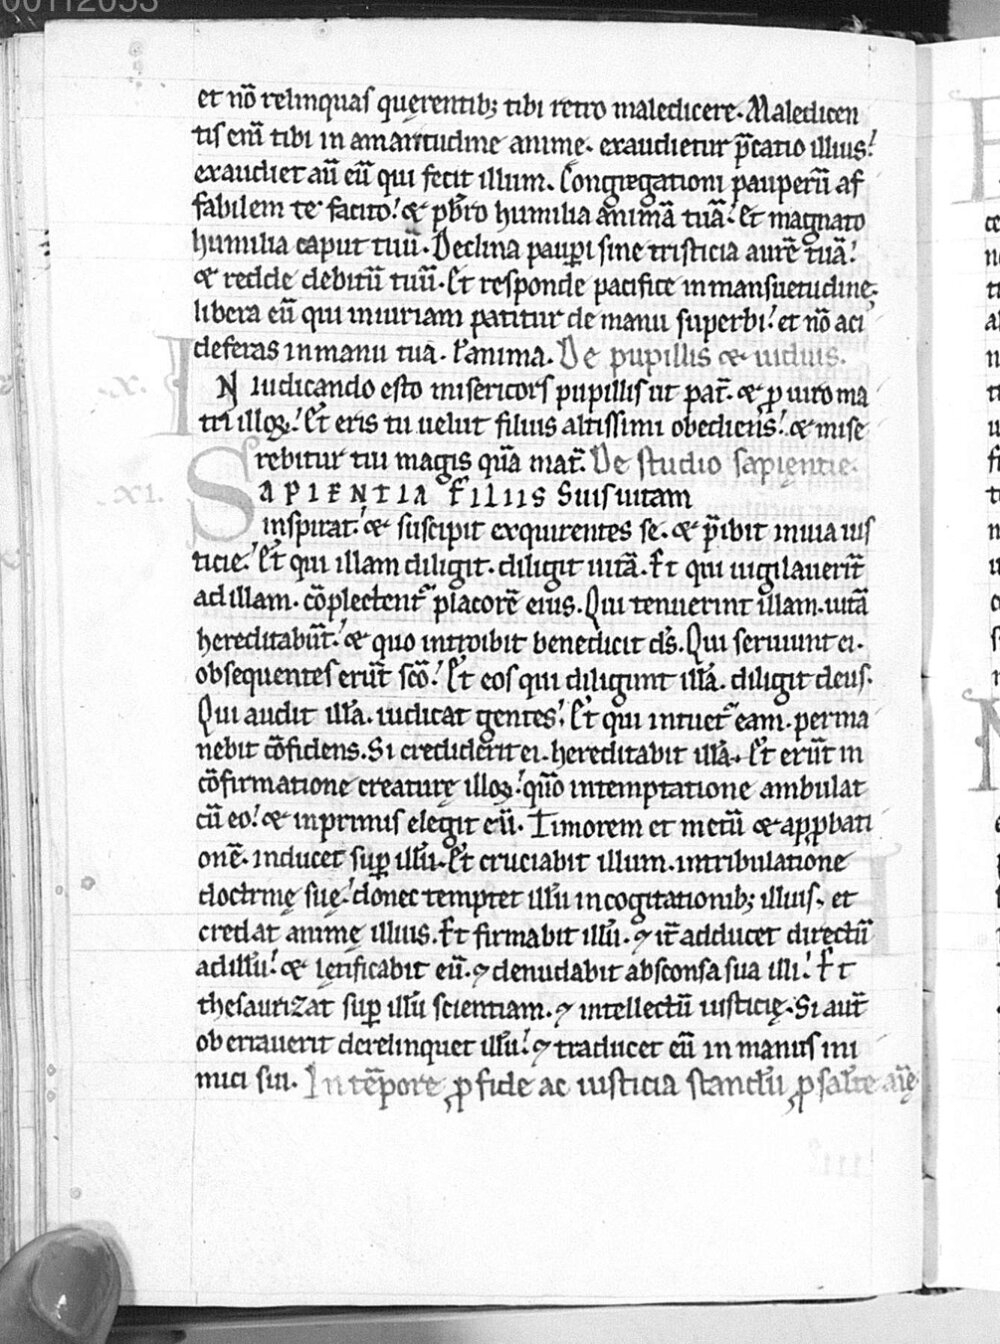 00112053
et nō relinquas quęrentib; tibi retro maledicere. Maledicen
tis enī tibi in amaritudine anime. exaudietur p̄catio illius!
exaudiet aū eū qui fecit illum. Congregationi pauperū af
fabilem te facito! & pb̄ro humilia animā tuā. Et magnato
humilia caput tuū. Declina paupi sine tristicia aurē tuā!
& redde debitū tuū. Et responde pacifice in mansuetudine.
libera eū qui iniuriam patitur de manu superbi! et nō aci
deferas in manu tua. l' anima. De pupillis & uiduis.
.x. IN iudicando esto misericors pupillis ut pat̄. & p uiro ma
tri illoꝝ! Et eris tu uelut filius altissimi obediens! & mise
rebitur tui magis quā mat̄. De studio sapientie.
.XI. SAPIENTIA FILIIS Suis uitam
inspirat! & suscipit exquirentes se. & p̄ibit in uia ius
ticie! Et qui illam diligit. diligit uitā. Et qui uigilauerīt
ad illam. cōplectent᷑ placorē eius. Qui tenuerint illam. uitā
hereditabūt! & quo introibit benedicit dṡ. Qui seruiunt ei.
obsequentes erūt scō! Et eos qui diligunt illā. diligit deus.
Qui audit illā. iudicat gentes! Et qui intuet᷑ eam. perma
nebit cōfidens. Si crediderit ei. hereditabit illā. Et erūt in
cōfirmatione creaturę illoꝝ! quō in temptatione ambulat
cū eo! & in primis elegit eū. Timorem et metū & apꝓbati
onē. inducet suꝑ illū. Et cruciabit illum. in tribulatione
doctrinę suę! donec temptet illū in cogitationib; illius. et
credat animę illius. Et firmabit illū. ⁊ it̄ adducet directū
ad illū! & lętificabit eū. ⁊ denudabit absconsa sua illi! Et
thesaurizat suꝑ illū scientiam. ⁊ intellectū iusticię. Si aut̄
oberrauerit derelinquet illū! ⁊ traducet eū in manus ini
mici sui. In tēpore ꝓ fide ac iusticia standū ꝓ salute aīę